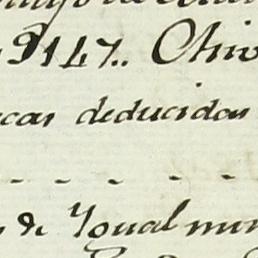 9147.. Chiv
cas deducidas
de Ygual num